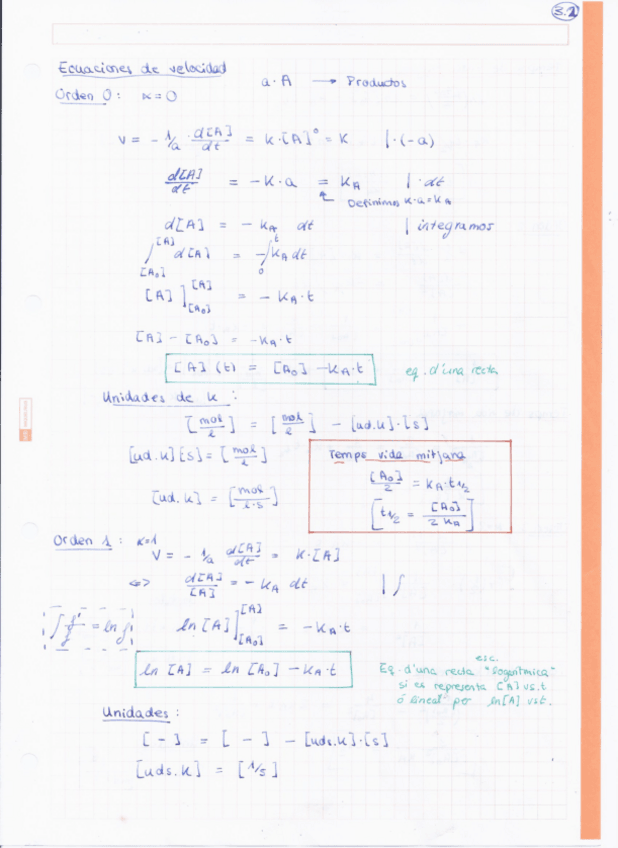 3.2
Ecuaciones de velocidad
a · A → Productos
Orden 0: α=0
v = - 1/a · d[A]/dt = K·[A]⁰ = K |·(-a)
d[A]/dt = -K·a = KA |· dt
Definimos K·a=KA
d[A] = -KA dt | integramos
∫[A₀]^[A] d[A] = -∫₀^t KA dt
[A]][A₀]^[A] = -KA·t
[A] - [A₀] = -KA·t
[A](t) = [A₀] -KA·t eq. d'una recta
Unidades de k:
[mol/l] = [mol/l] - [ud.k]·[s]
[ud.k][s] = [mol/l]
[ud.k] = [mol/l·s]
Temps vida mitjana
[A₀]/2 = KA·t1/2
[t1/2 = [A₀]/2KA]
Orden 1: α=1
V = - 1/a d[A]/dt = K·[A]
<=> d[A]/[A] = -KA dt |∫
∫f'/f = ln f
ln[A]][A₀]^[A] = -KA·t
ln [A] = ln [A₀] -KA·t
esc.
Eq. d'una recta "logarítmica"
si es representa [A] vs.t
ó lineal per ln[A] vs t.
Unidades:
[-] = [-] - [uds.k]·[s]
[uds.k] = [1/s]